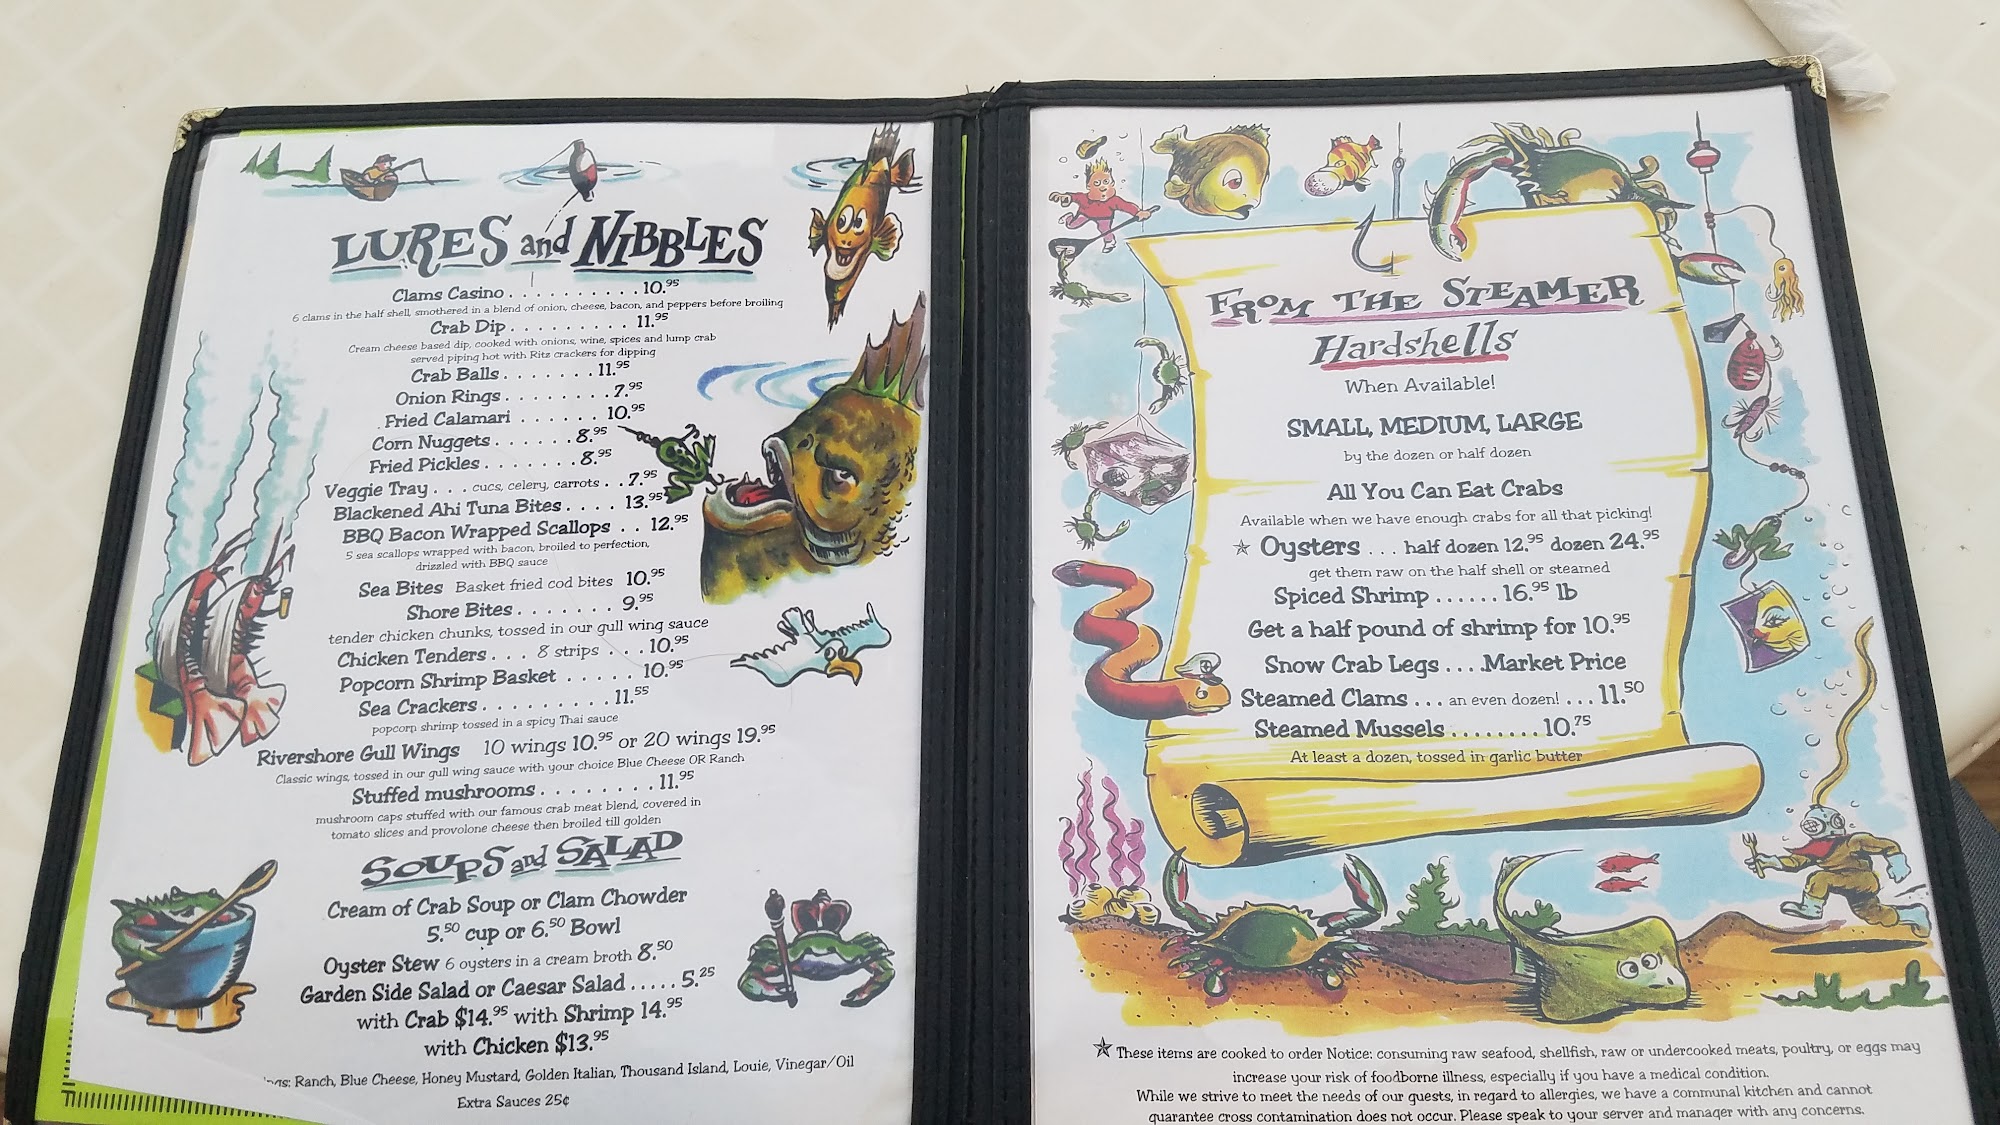 LURES and NIBBLES
Clams Casino . . . . . . . . . . . 10.95
6 clams in the half shell, smothered in a blend of onion, cheese, bacon, and peppers before broiling
Crab Dip . . . . . . . . . 11.95
Cream cheese based dip, cooked with onions, wine, spices and lump crab
served piping hot with Ritz crackers for dipping
Crab Balls . . . . . . . 11.95
Onion Rings . . . . . . . . . 7.95
Fried Calamari . . . . . . 10.95
Corn Nuggets . . . . . . 8.95
Fried Pickles . . . . . . . 8.95
Veggie Tray . . . cucs, celery, carrots . . 7.95
Blackened Ahi Tuna Bites . . . . 13.95
BBQ Bacon Wrapped Scallops . . 12.95
5 sea scallops wrapped with bacon, broiled to perfection,
drizzled with BBQ sauce
Sea Bites Basket fried cod bites 10.95
Shore Bites . . . . . . . 9.95
tender chicken chunks, tossed in our gull wing sauce
Chicken Tenders . . . 8 strips . . . 10.95
Popcorn Shrimp Basket . . . . . 10.95
Sea Crackers . . . . . . . . . 11.55
popcorn shrimp tossed in a spicy Thai sauce
Rivershore Gull Wings 10 wings 10.95 or 20 wings 19.95
Classic wings, tossed in our gull wing sauce with your choice Blue Cheese OR Ranch
Stuffed mushrooms . . . . . . . . 11.95
mushroom caps stuffed with our famous crab meat blend, covered in
tomato slices and provolone cheese then broiled till golden
SOUPS and SALAD
Cream of Crab Soup or Clam Chowder
5.50 cup or 6.50 Bowl
Oyster Stew 6 oysters in a cream broth 8.50
Garden Side Salad or Caesar Salad . . . . . 5.25
with Crab $14.95 with Shrimp 14.95
with Chicken $13.95
Ranch, Blue Cheese, Honey Mustard, Golden Italian, Thousand Island, Louie, Vinegar/Oil
Extra Sauces 25¢
FROM THE STEAMER
Hardshells
When Available!
SMALL, MEDIUM, LARGE
by the dozen or half dozen
All You Can Eat Crabs
Available when we have enough crabs for all that picking!
☆ Oysters . . . half dozen 12.95 dozen 24.95
get them raw on the half shell or steamed
Spiced Shrimp . . . . . . 16.95 lb
Get a half pound of shrimp for 10.95
Snow Crab Legs . . . . Market Price
Steamed Clams . . . an even dozen! . . . 11.50
Steamed Mussels . . . . . . . . 10.75
At least a dozen, tossed in garlic butter
☆ These items are cooked to order Notice: consuming raw seafood, shellfish, raw or undercooked meats, poultry, or eggs may
increase your risk of foodborne illness, especially if you have a medical condition.
While we strive to meet the needs of our guests, in regard to allergies, we have a communal kitchen and cannot
guarantee cross contamination does not occur. Please speak to your server and manager with any concerns.